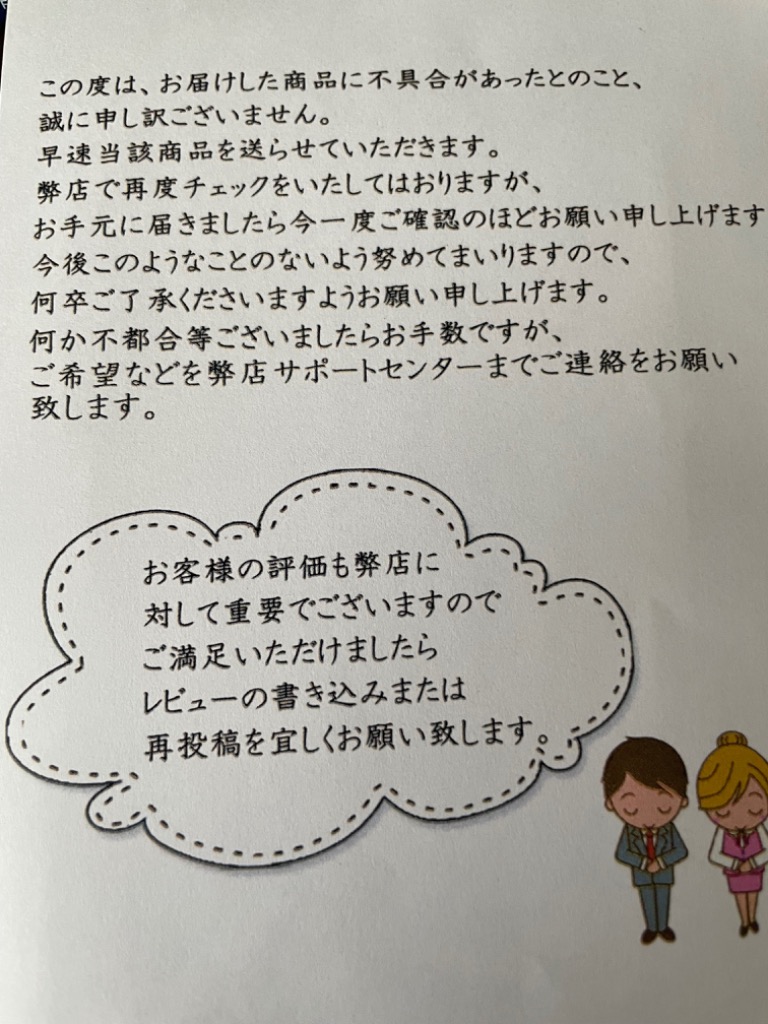 この度は、お届けした商品に不具合があったとのこと、
誠に申し訳ございません。
早速当該商品を送らせていただきます。
弊店で再度チェックをいたしてはおりますが、
お手元に届きましたら今一度ご確認のほどお願い申し上げます
今後このようなことのないよう努めてまいりますので、
何卒ご了承くださいますようお願い申し上げます。
何か不都合等ございましたらお手数ですが、
ご希望などを弊店サポートセンターまでご連絡をお願い
致します。
お客様の評価も弊店に
対して重要でございますので
ご満足いただけましたら
レビューの書き込みまたは
再投稿を宜しくお願い致します。